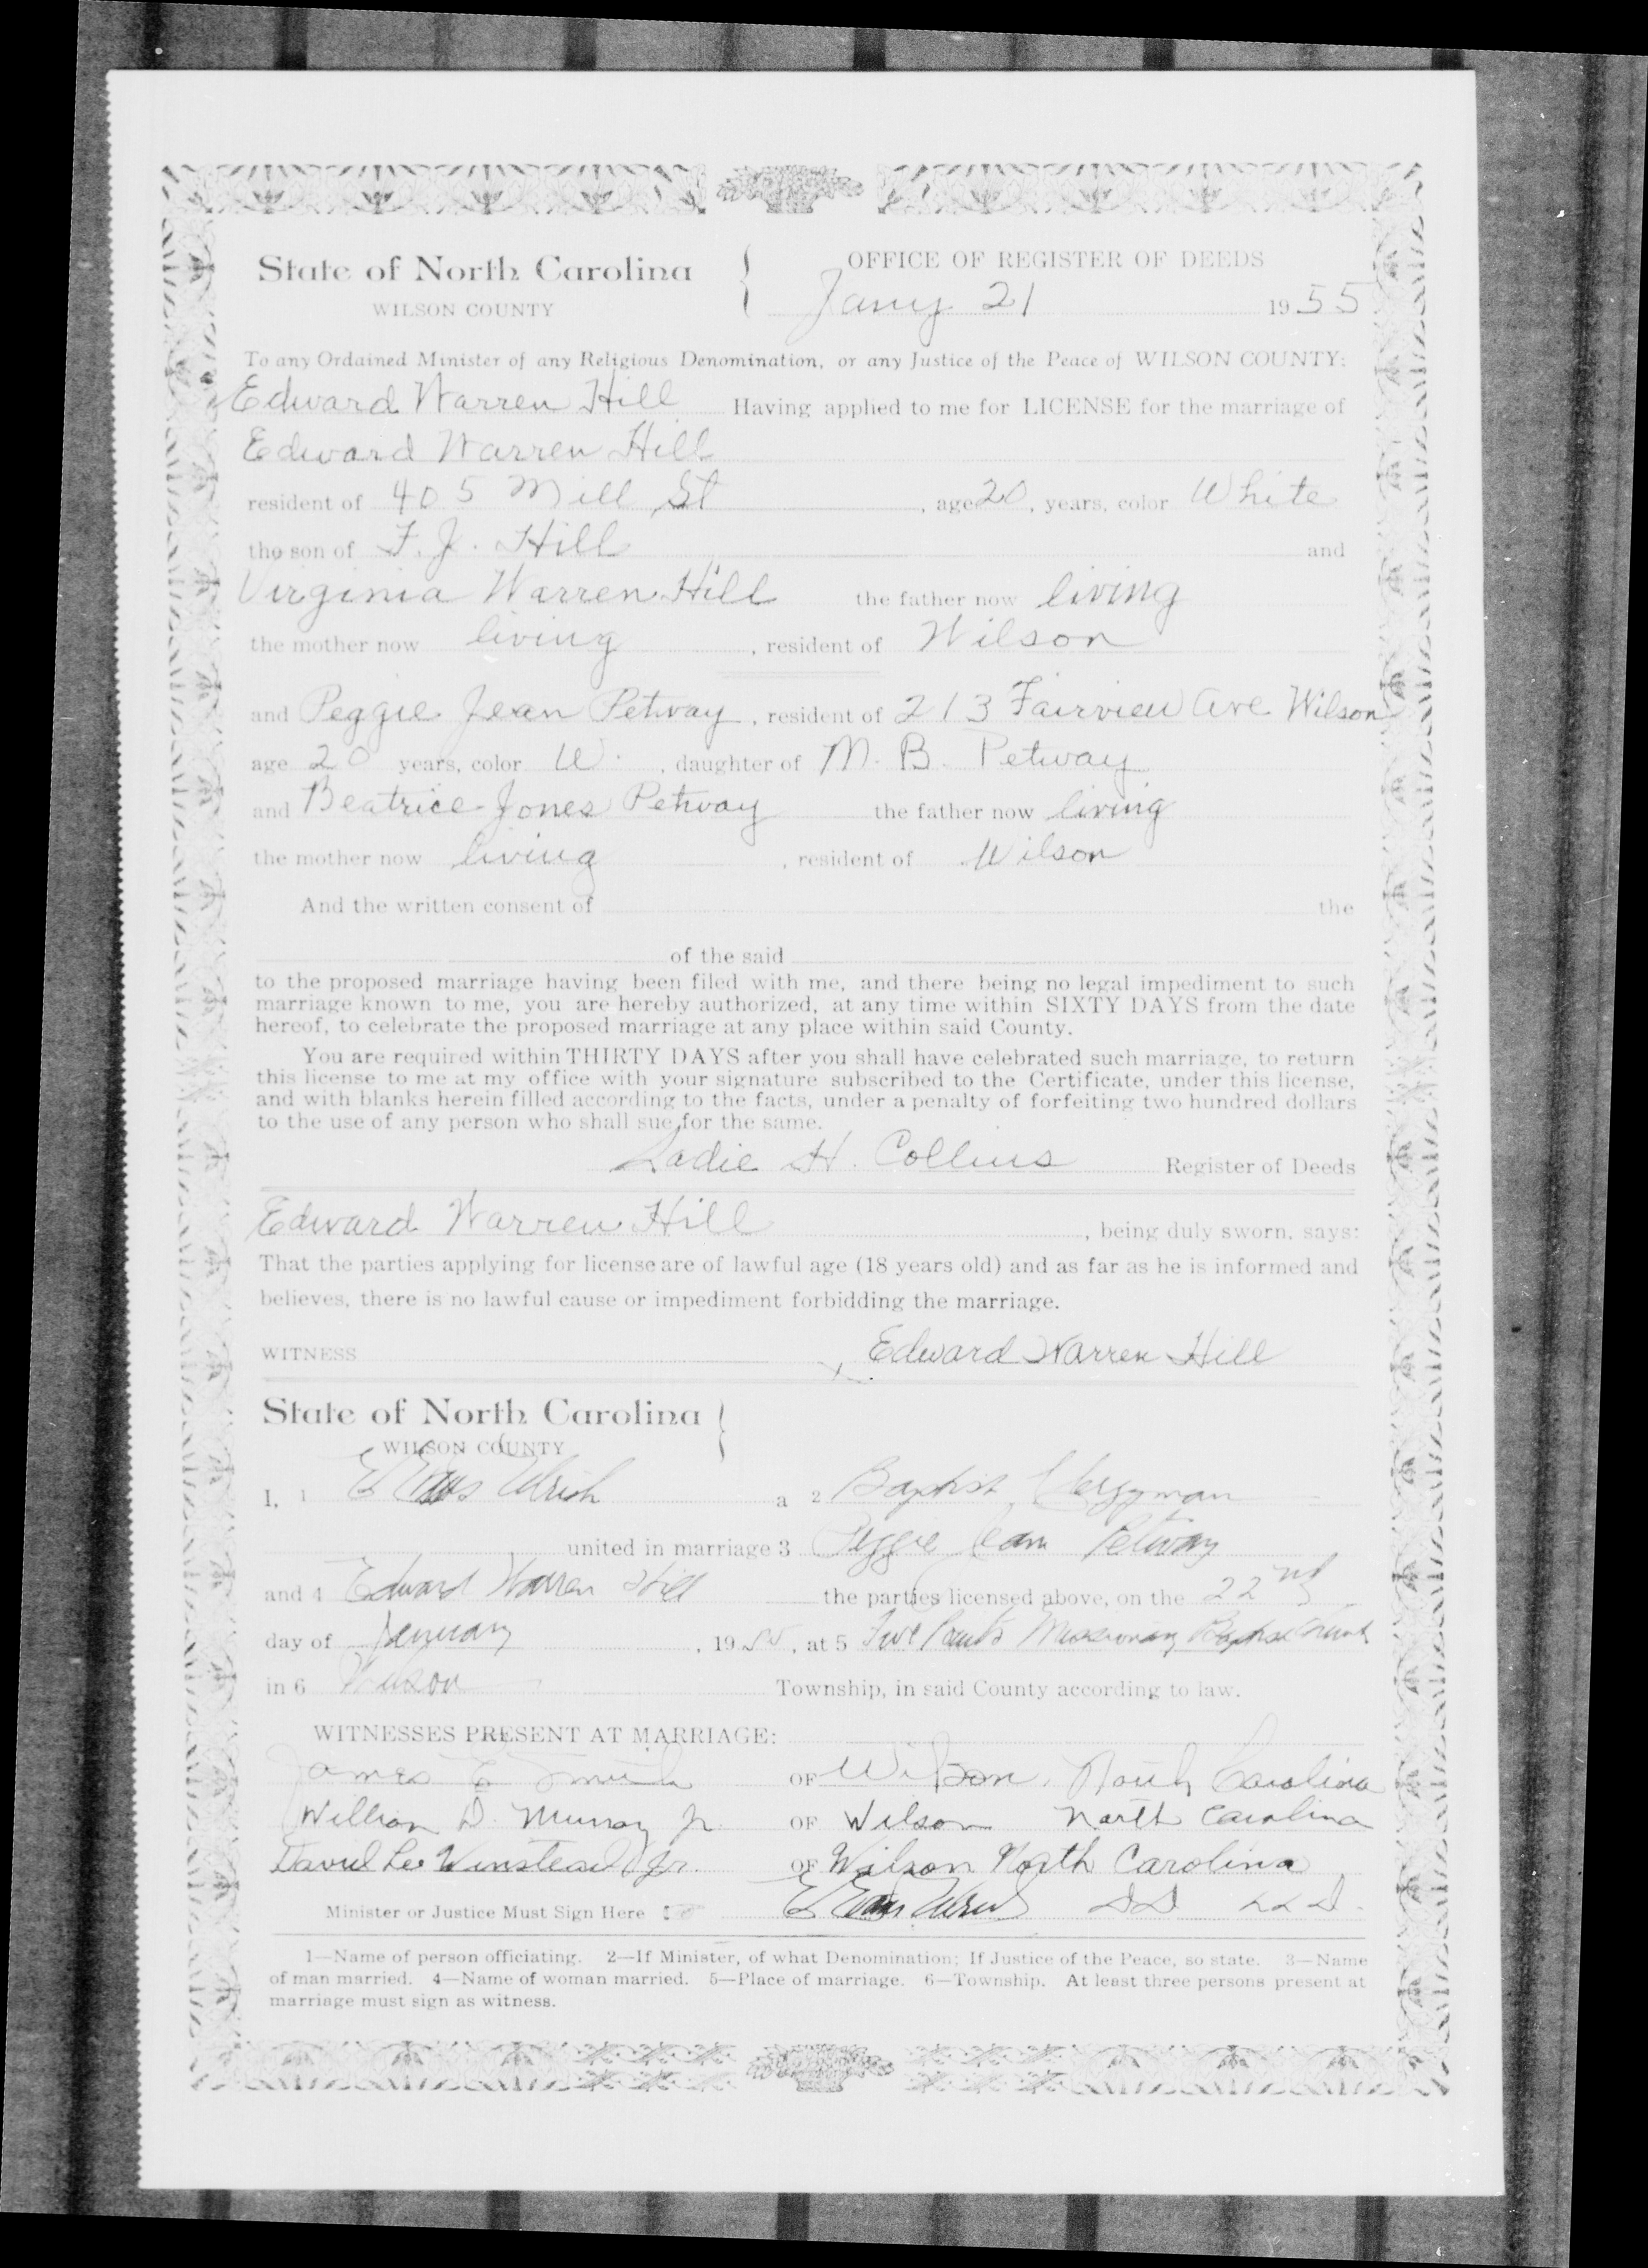 State of North Carolina
WILSON COUNTY
OFFICE OF REGISTER OF DEEDS
Jany 21 1955
To any Ordained Minister of any Religious Denomination, or any Justice of the Peace of WILSON COUNTY:
Edward Warren Hill Having applied to me for LICENSE for the marriage of
Edward Warren Hill
resident of 405 Mill St, age 20, years, color White
the son of F. J. Hill and
Virginia Warren Hill the father now living
the mother now living, resident of Wilson
and Peggie Jean Petway, resident of 213 Fairview Ave Wilson
age 20 years, color W., daughter of M. B. Petway
and Beatrice Jones Petway the father now living
the mother now living, resident of Wilson
And the written consent of the
of the said
to the proposed marriage having been filed with me, and there being no legal impediment to such
marriage known to me, you are hereby authorized, at any time within SIXTY DAYS from the date
hereof, to celebrate the proposed marriage at any place within said County.
You are required within THIRTY DAYS after you shall have celebrated such marriage, to return
this license to me at my office with your signature subscribed to the Certificate, under this license,
and with blanks herein filled according to the facts, under a penalty of forfeiting two hundred dollars
to the use of any person who shall sue for the same.
H. Collins Register of Deeds
Edward Warren Hill, being duly sworn, says:
That the parties applying for license are of lawful age (18 years old) and as far as he is informed and
believes, there is no lawful cause or impediment forbidding the marriage.
WITNESS x Edward Warren Hill
State of North Carolina
WILSON COUNTY
I, 1 a 2 Baptist Clergyman
united in marriage 3 Peggie Jean Petway
and 4 Edward Warren Hill the parties licensed above, on the 22nd
day of January, 1955, at 5 Five Points Missionary Baptist Church
in 6 Wilson Township, in said County according to law.
WITNESSES PRESENT AT MARRIAGE:
James E Smith OF Wilson, North Carolina
William D. Murray Jr. OF Wilson North Carolina
David Lee Winstead Jr. OF Wilson North Carolina
Minister or Justice Must Sign Here DD LLD.
1—Name of person officiating. 2—If Minister, of what Denomination; If Justice of the Peace, so state. 3—Name
of man married. 4—Name of woman married. 5—Place of marriage. 6—Township. At least three persons present at
marriage must sign as witness.